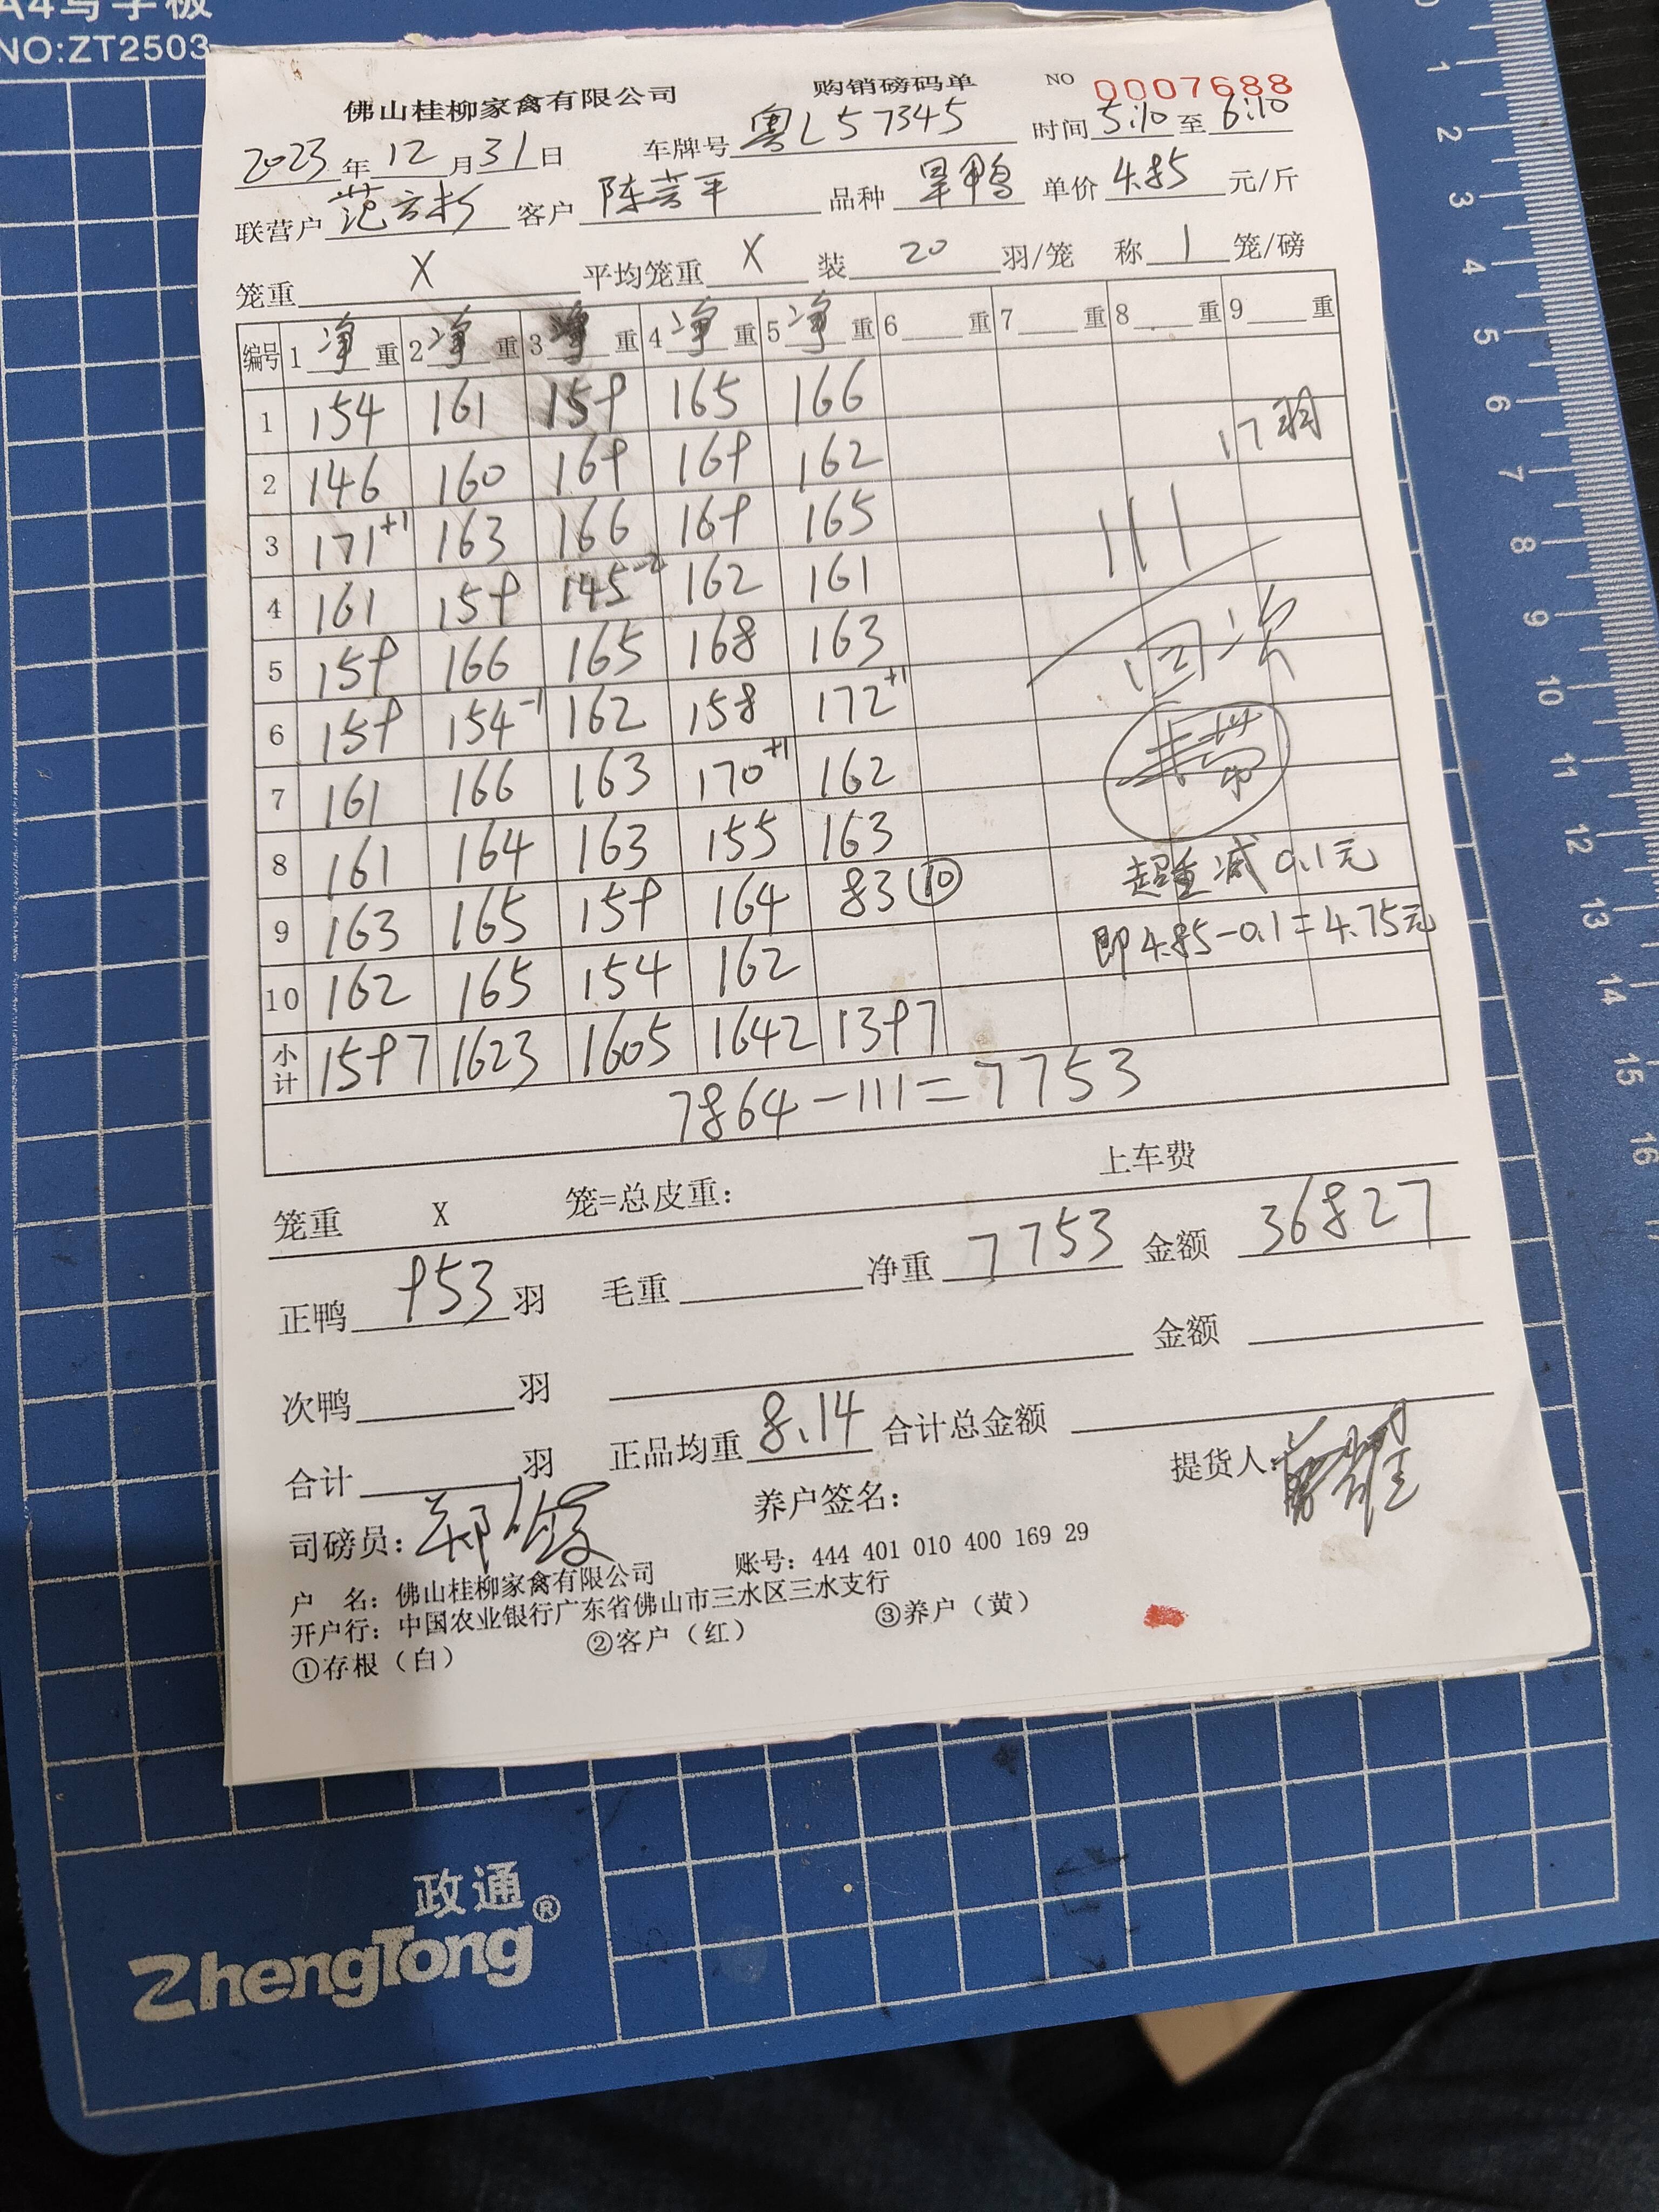 A4写字板
NO:ZT2503
佛山桂柳家禽有限公司 购销磅码单 NO 0007688
2023年12月31日 车牌号 粤L57345 时间 5:10 至 6:10
联营户 客户 陈芳平 品种 旱鸭 单价 4.85 元/斤
笼重 X 平均笼重 X 装 20 羽/笼 称 1 笼/磅
编号 1 净 重 2 净 重 3 净 重 4 净 重 5 净 重 6 重 7 重 8 重 9 重
1 154 161 159 165 166
2 146 160 169 169 162 17羽
3 171+1 163 166 169 165 111
4 161 159 145-2 162 161
5 159 166 165 168 163 回次
6 159 154-1 162 158 172+1
7 161 166 163 170+1 162
8 161 164 163 155 163 超重减0.1元
9 163 165 159 164 83⑩ 即4.85-0.1=4.75元
10 162 165 154 162
小计 1597 1623 1605 1642 1397
7864-111=7753
笼重 X 笼=总皮重: 上车费
正鸭 953 羽 毛重 净重 7753 金额 36827
次鸭 羽 金额
合计 羽 正品均重 8.14 合计总金额
司磅员: 养户签名: 提货人:
户 名: 佛山桂柳家禽有限公司 账号: 444 401 010 400 169 29
开户行: 中国农业银行广东省佛山市三水区三水支行
①存根(白) ②客户(红) ③养户(黄)
0
1
2
3
4
5
6
7
8
9
10
11
12
13
14
15
16
政通®
ZhengTong